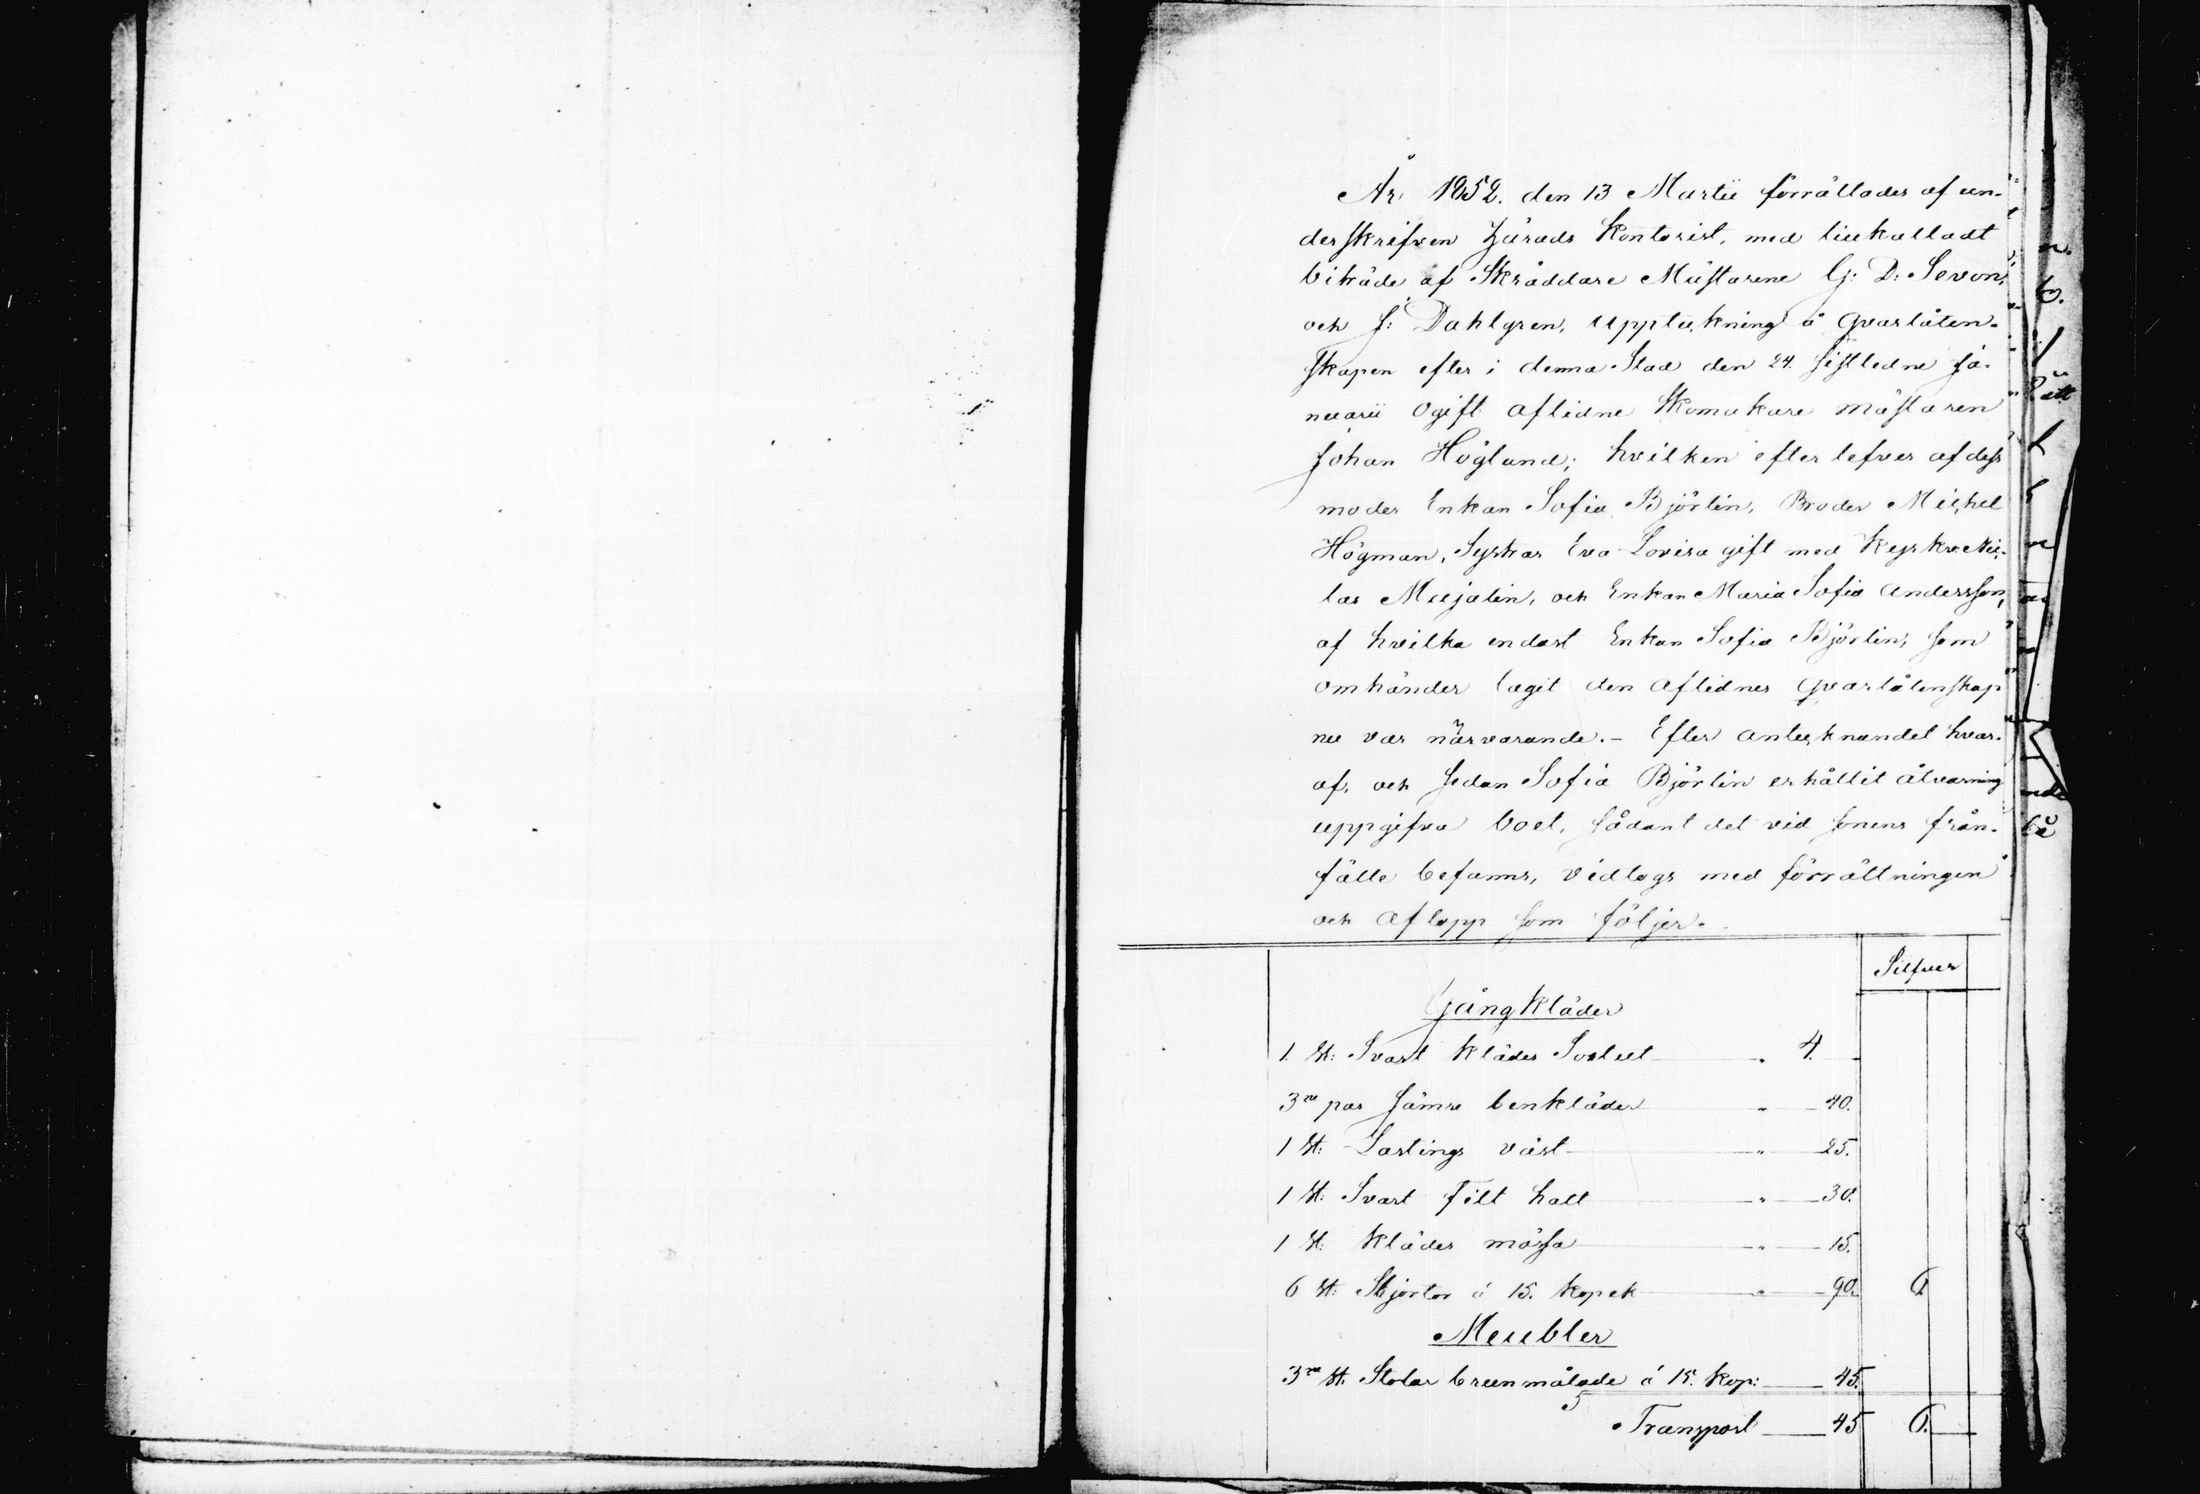 År 1852. den 13 Martii förrättades af un-
derskrifven Härads Kontorist, med tillkalladt
biträde af Skräddare Mästarene G: D: Sevon,
och J: Dahlgren, uppteckning å qvarlåten-
skapen efter i denna Stad den 24. sistledne Ja-
nuarii ogift aflidne Skomakare mästaren
Johan Höglund; hvilken efterlefves af dess
moder Enkan Sofia Björlin, Broder Michel
Högman, Systrar Eva Lovisa gift med
Majalin, och Enkan Maria Sofia Andersson,
af hvilka endast Enkan Sofia Björlin, som
omhänder tagit den aflidnes qvarlåtenskap
nu var närvarande.- Efter antecknandet hvar-
af, och sedan Sofia Björlin erhållit åtvarning
uppgifva boet, sådant det vid sonens från-
fälle befanns, vidtogs med förrättningen
och aflopp som följer.
Silfver
Gång Kläder
1 st: Svart Klädes Surtut " 4.
3ne par sämre benkläder " 40.
1 st: Lastings väst " 25.
1 st: Svart Filt hatt " 30.
1 st: Klädes mössa " 15.
6 st: Skjortor á 15. kopek " 90. 6
Meubler
3ne st. Stolar brunmålade á 15. kop: 45.
Transport 45 6.